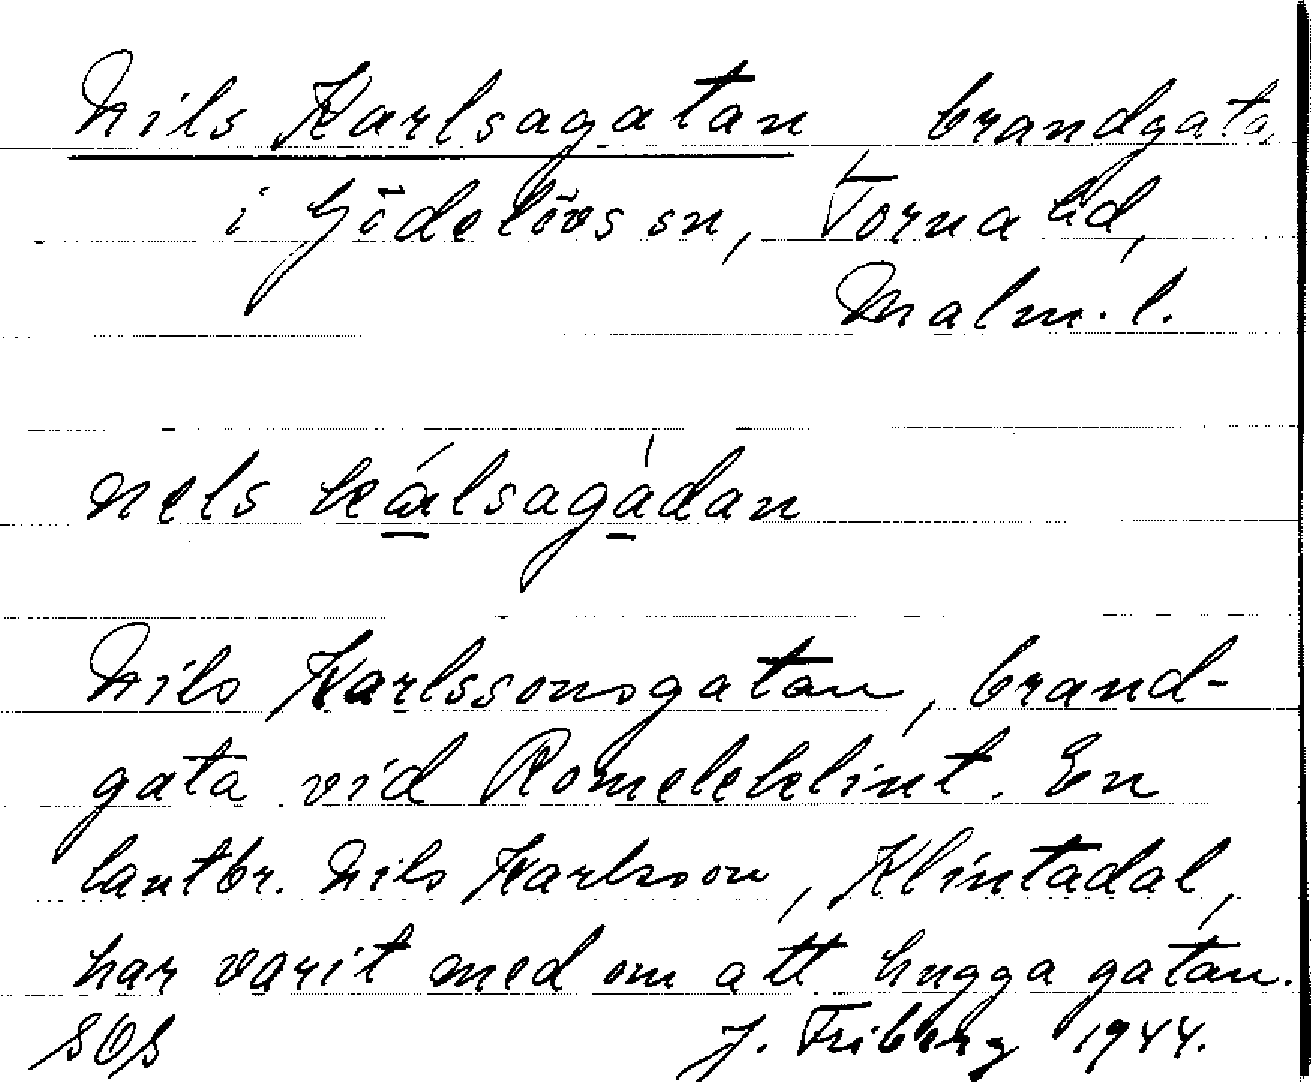 Nils Karlsagatan brandgata,
i Gödelövs sn, Torna hd,
Malm. l.
nels kálsagàdan
Nils Karlssonsgatan, brand-
gata vid Romeleklint. En
lantbr. Nils Karlsson, Klintadal,
har varit med om att hugga gatan.
SOS J. Friberg 1944.